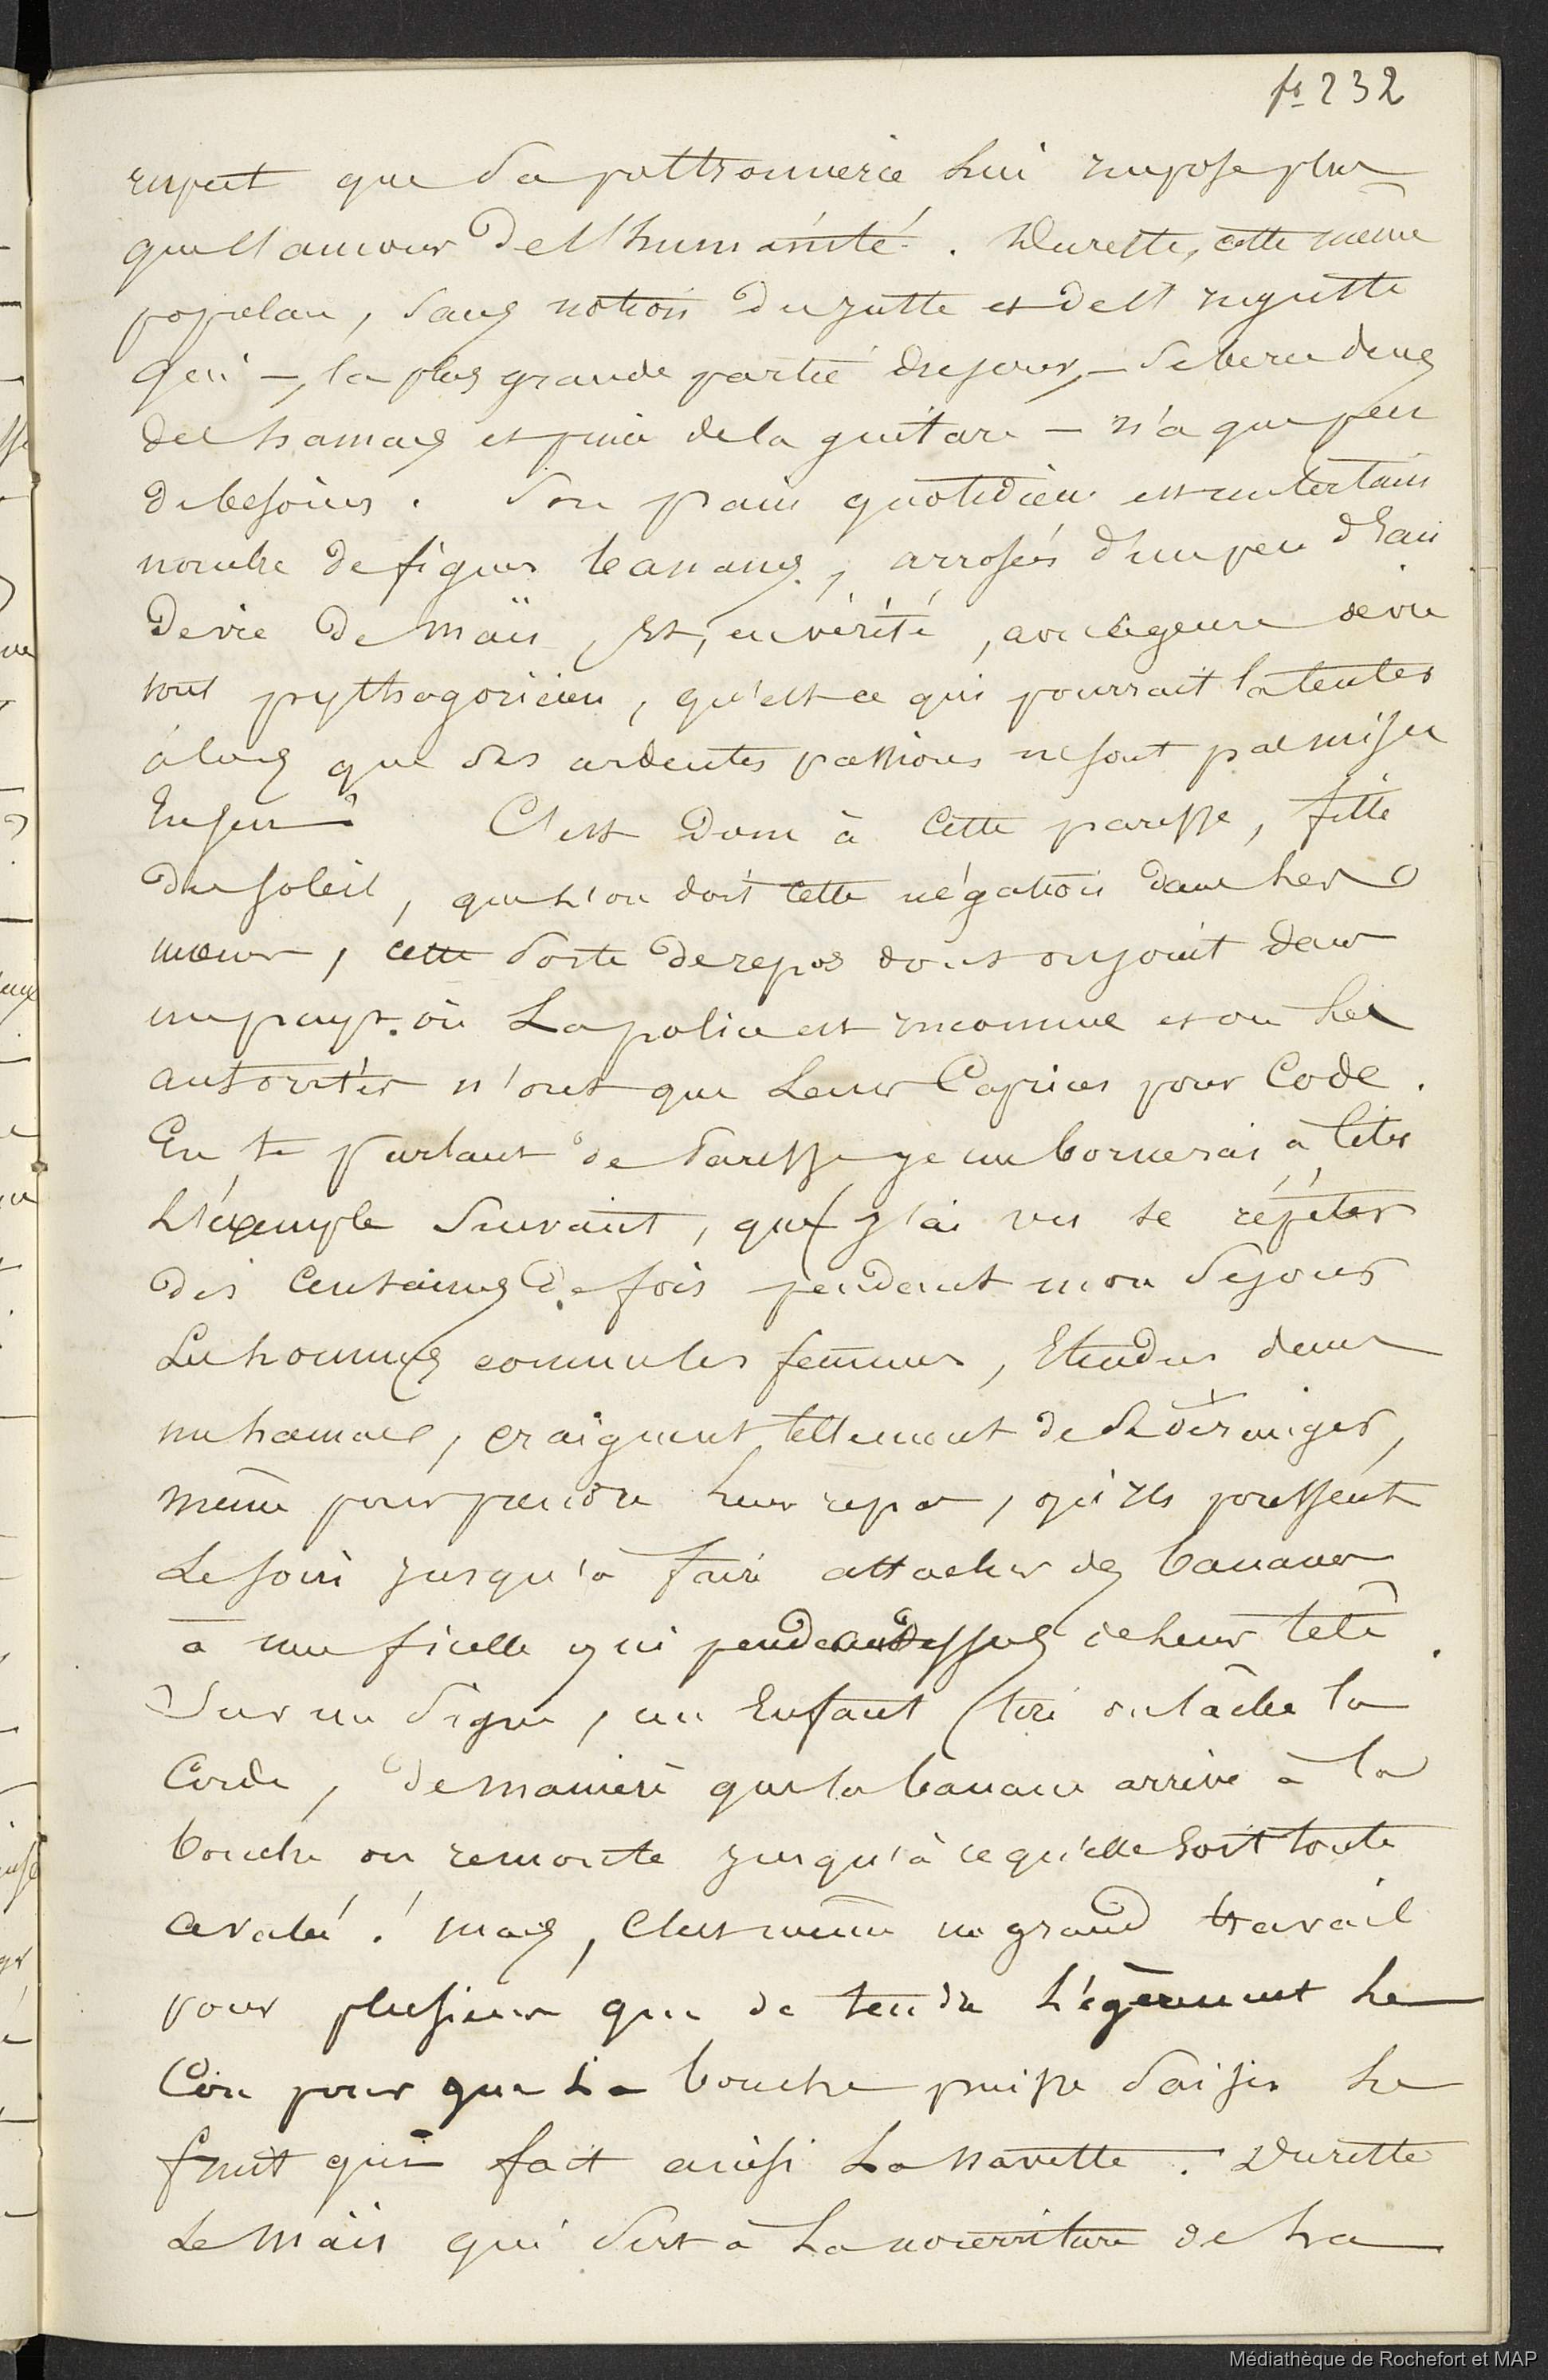 fo 232
respect que sa poltronnerie lui impose plus
que l'amour de l'humanité. Dureste, cette même
popolau, sans notion du juste et de l'injuste
qui -, la plus grande partie du jour, - se berce dans
des hamacs et pince de la guitare - n'a que peu
de besoins. Son pain quotidien est un certain
nombre de figues bananes, arrosées d'un peu d'Eau
de vie de Maïs, Et, en vérité, avec ce genre de vie
tout pythagoricien, qu'est-ce qui pourrait la tenter
alors que ses ardentes passions ne sont pas mises
En jeu? C'est Donc à cette paresse, fille
du soleil, que l'on doit cette négation dans les
mœurs, cette sorte de repos dont on jouit dans
un pays où La police est inconnue et ou les
autorités n'ont que Leurs Caprices pour Code.
En te parlant de Paresse je me bornerai à citer
L'éxemple Suivant, que j'ai vu se répéter
des Centaines de fois pendant mon Séjour
Les hommes comme les femmes, Etendus dans
un hamac, craignent tellement de Se déranger,
même pour prendre leur repas, qu'ils poussent
Le soin jusqu'à faire attacher des bananes
à une ficelle qui pend au dessus de leur tête.
Sur un Signe, un Enfant tire ou lâche la
Corde, de manière que la banane arrive à la
bouche ou remonte jusqu'à ce qu'elle soit toute
avalée! mais, C'est même un grand travail
pour plusieurs que de tendre légèrement le
Cou pour que La bouche puisse Saisir le
fruit qui fait ainsi La navette. Dureste
Le Maïs qui Sert à La nourriture de La
Médiathèque de Rochefort et MAP